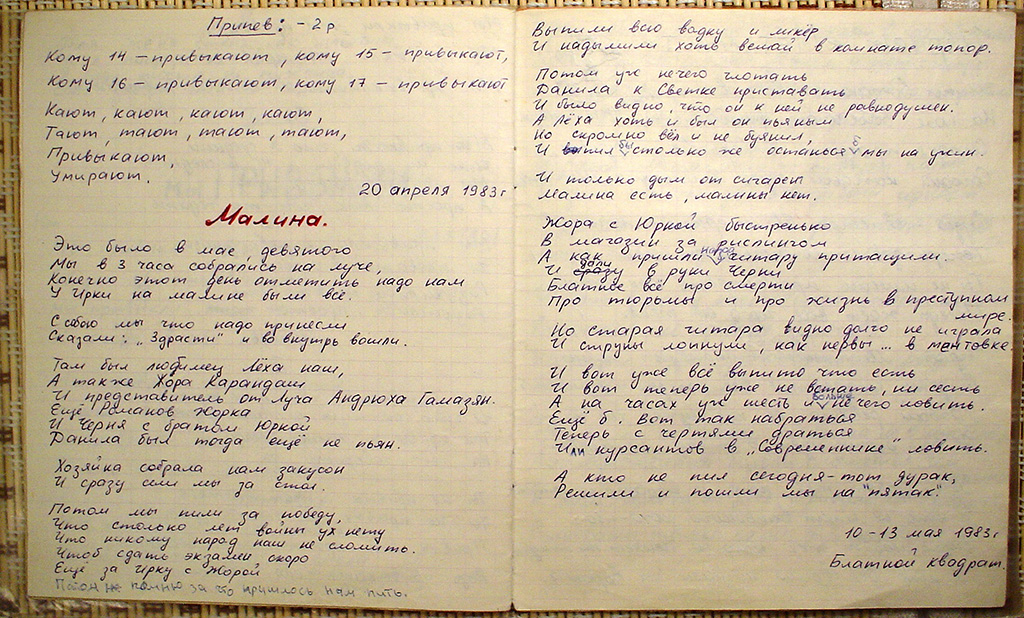 Припев: - 2р
Кому 14 - привыкают, кому 15 - привыкают,
Кому 16 - привыкают, кому 17 - привыкают
Кают, кают, кают, кают,
Тают, тают, тают, тают,
Привыкают,
Умирают.
20 апреля 1983 г
Малина.
Это было в мае, девятого
Мы в 3 часа собрались на луче,
Конечно этот день отметить надо нам
У Ирки на малине были все.
С собою мы что надо принесли
Сказали: „Здрасти" и во внутрь вошли.
Там был любимец Лёха наш,
А также Жора Карандаш
И представитель от Луча Андрюха Гамазян.
Ещё Романов Жорка
И Черня с братом Юркой
Данила был тогда ещё не пьян.
Хозяйка собрала нам закусон
И сразу сели мы за стол.
Потом мы пили за победу,
Что столько лет войны ух нету
Что никому народ наш не сломить.
Чтоб сдать экзамен скоро
Ещё за Ирку с Жорой
Потом не помню за что пришлось нам пить.
Выпили всю водку и ликёр
И надымили хоть вешай в комнате топор.
Потом уж нечего глотать
Данила к Светке приставать
И было видно, что он к ней не равнодушен.
А Лёха хоть и был он пьяным
Но скромно вёл и не буянил,
И пил бы столько же остаться б мы на ужин.
И только дым от сигарет
Малина есть, малины нет.
Жора с Юркой быстренько
В магазин за рислингом
А как пришли назад гитару притащили.
И дали в руки Черни
Блатные всё про смерти
Про тюрьмы и про жизнь в преступном
мире.
Но старая гитара видно долго не играла
И струны лопнули, как нервы... в ментовке.
И вот уже всё выпито что есть
И вот теперь уже не встать, ни сесть
А на часах уж шесть и больше нечего ловить.
Ещё б. Вот так набраться
Теперь с чертями драться
Или курсантов в „Современнике" ловить.
А кто не пил сегодня - тот дурак,
Решили и пошли мы на "пятак".
10-13 мая 1983 г
Блатной квадрат.